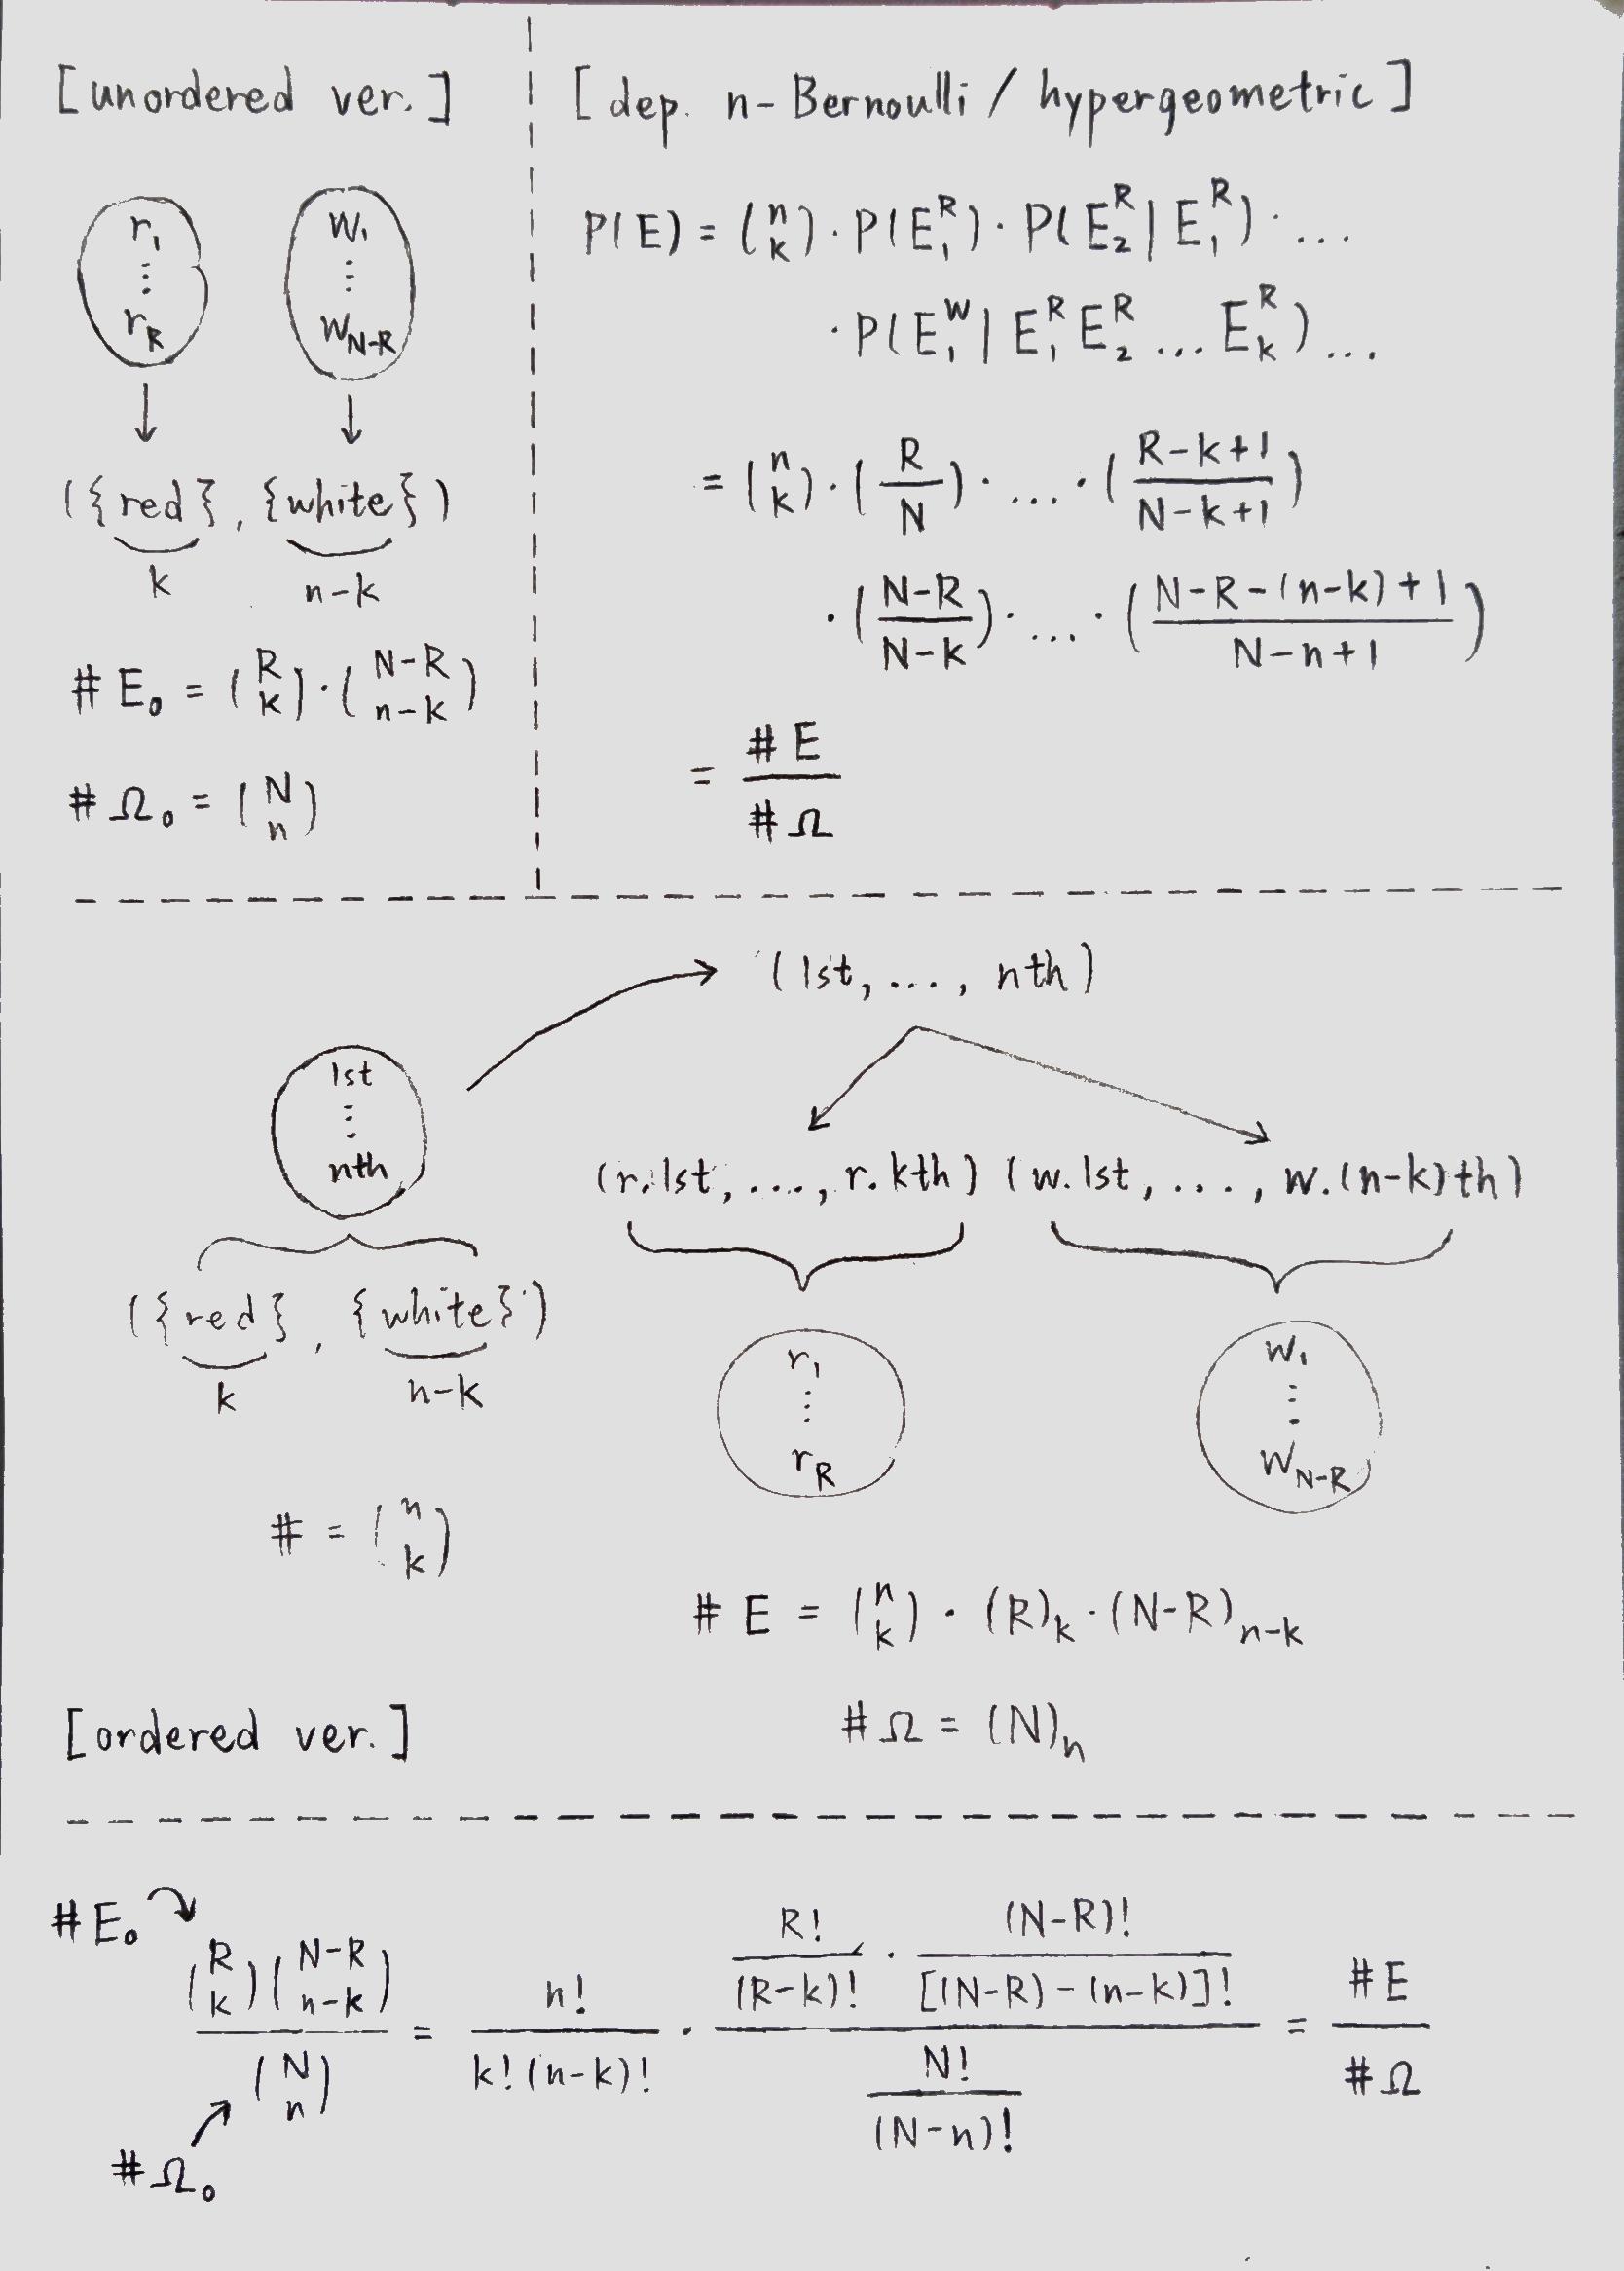 [unordered ver.]
r₁
⋮
r_R
w₁
⋮
w_{N-R}
({red}, {white})
k
n-k
# E₀ = (R k)·(N-R n-k)
# Ω₀ = (N n)
[dep. n-Bernoulli / hypergeometric]
P(E) = (n k)·P(E₁^R)·P(E₂^R | E₁^R)·...
·P(E₁^W | E₁^R E₂^R ... E_k^R)...
= (n k)·(R/N)·...·((R-k+1)/(N-k+1))
·((N-R)/(N-k))·...·((N-R-(n-k)+1)/(N-n+1))
= #E / #Ω
(1st, ..., nth)
1st
⋮
nth
({red}, {white})
k
n-k
# = (n k)
(r.1st, ..., r.kth) (w.1st, ..., w.(n-k)th)
r₁
⋮
r_R
w₁
⋮
w_{N-R}
# E = (n k)·(R)_k·(N-R)_{n-k}
# Ω = (N)_n
[ordered ver.]
#E₀
(R k)(N-R n-k) / (N n) = n! / (k!(n-k)!) · (R!/(R-k)! · (N-R)!/[(N-R)-(n-k)]!) / (N!/(N-n)!) = #E / #Ω
#Ω₀